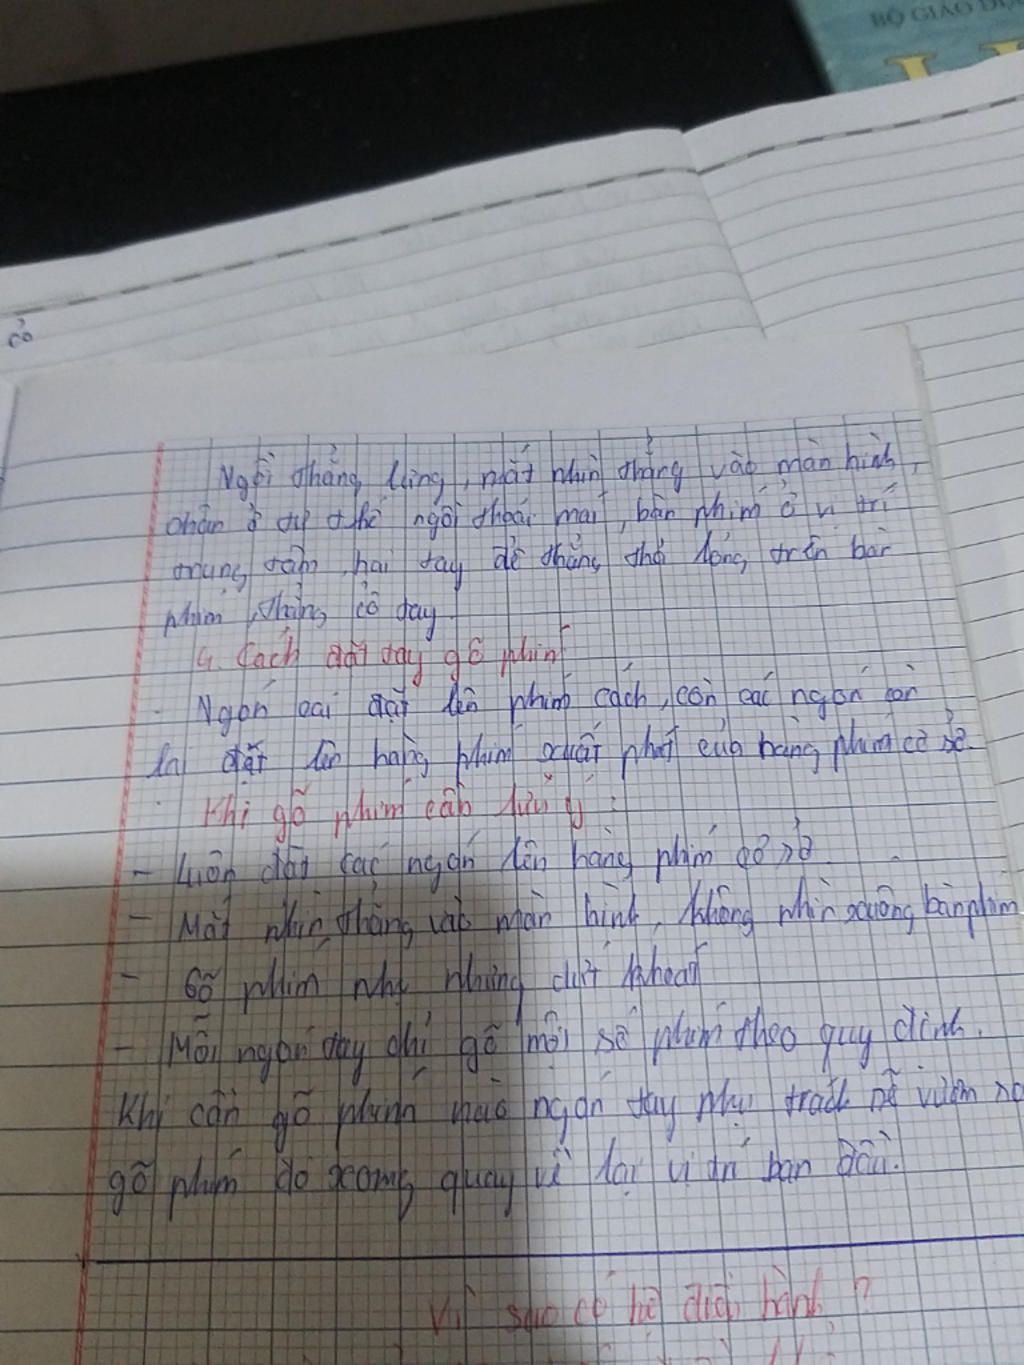 BỘ GIÁO DỤC
cỏ
Ngồi thẳng lưng, mắt nhìn thẳng vào màn hình,
chân ở tư thế ngồi thoải mái, bàn phím ở vị trí
trung tâm, hai tay để thẳng thả lỏng trên bàn
phím, thẳng cổ tay
4. Cách đặt tay gõ phím
- Ngón cái đặt lên phím cách, còn các ngón còn
lại đặt lên hàng phím xuất phát của hàng phím cơ sở.
Khi gõ phím cần lưu ý :
- Luôn đặt các ngón lên hàng phím cơ sở
- Mắt nhìn thẳng vào màn hình, không nhìn xuống bàn phím
- Gõ phím nhẹ nhưng dứt khoát
- Mỗi ngón tay chỉ gõ một số phím theo quy định.
Khi cần gõ phím nào ngón tay phụ trách sẽ vươn ra
gõ phím đó xong quay về lại vị trí ban đầu.
Vì sao có hệ điều hành ?